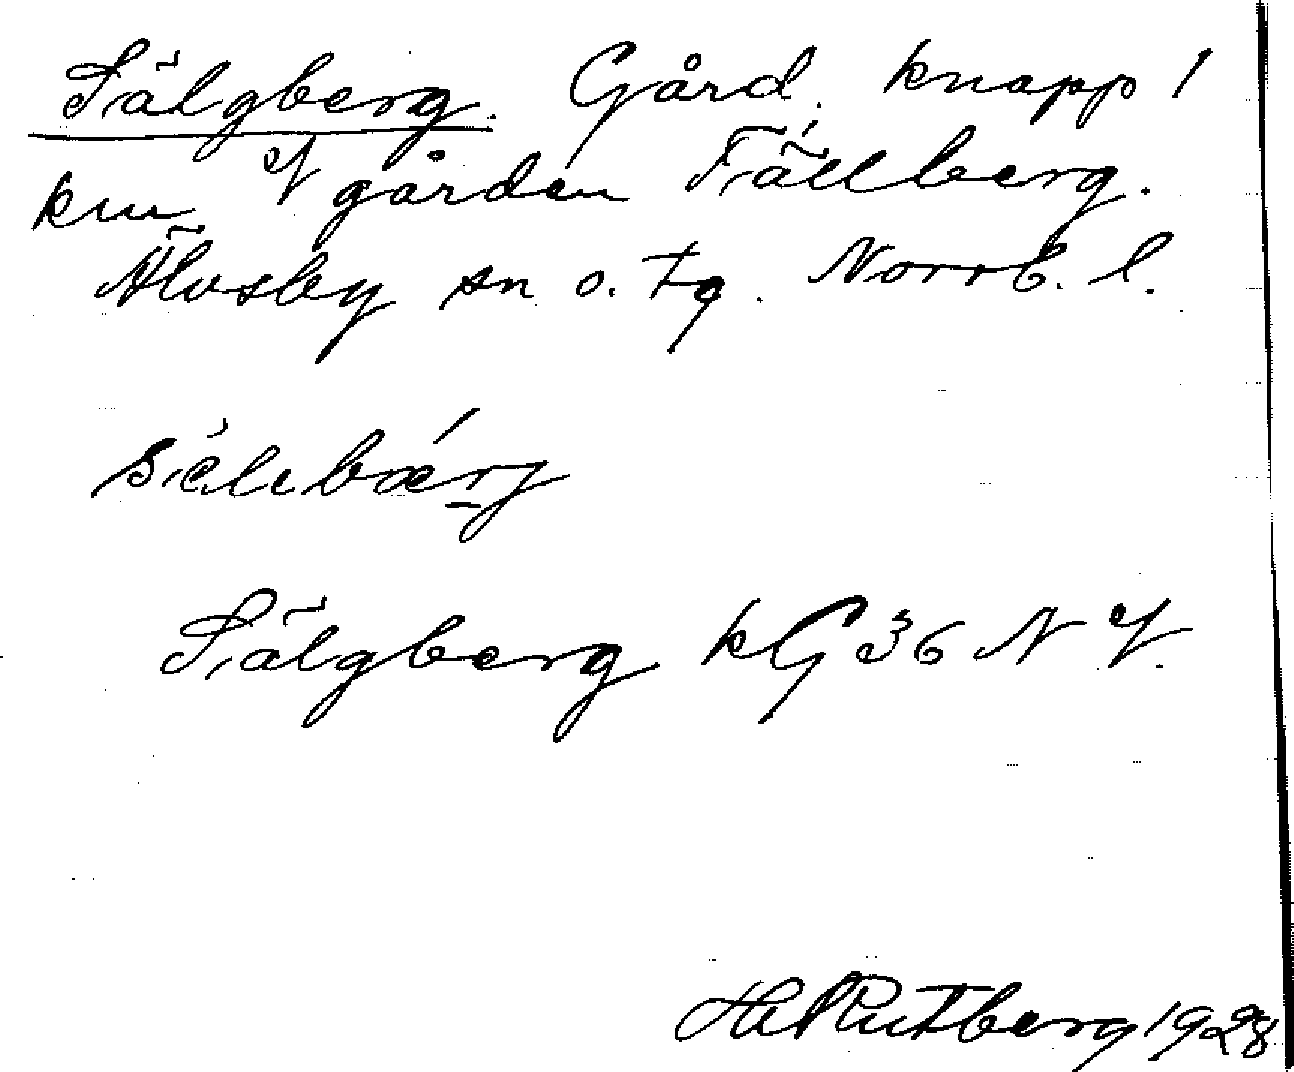 Sälgberg. Gård, knapp 1
km V gården Fällberg.
Älvsby sn o. tg. Norrb. l.
Sälgberg kG 36 N V.
H Rutberg 1928